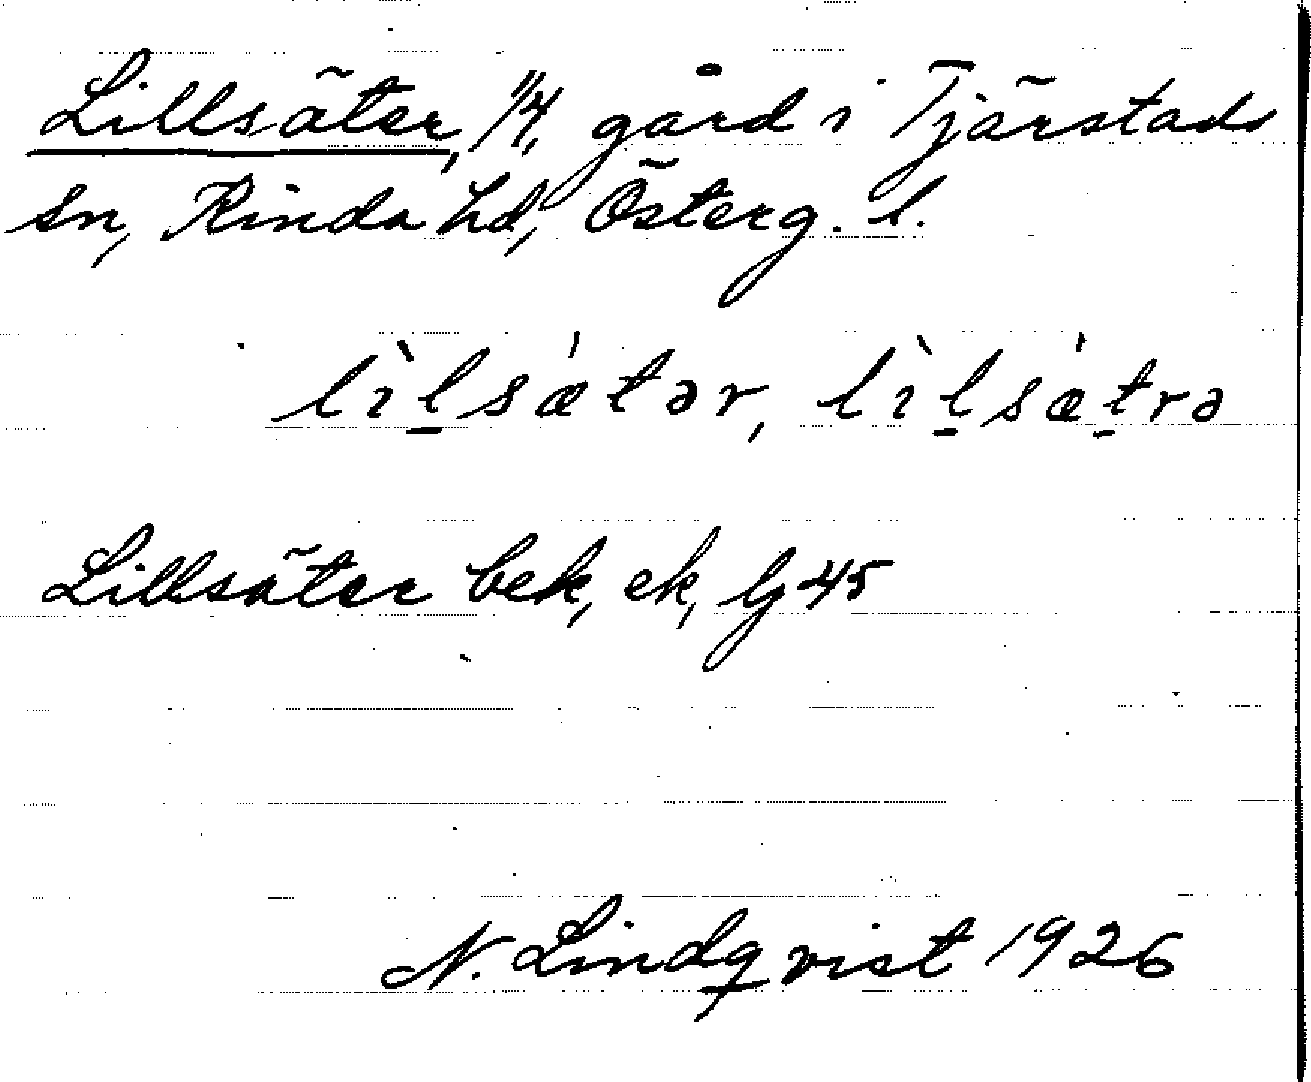 Lillsäter, 1/4, gård i Tjärstads
sn, Kinda hd, Österg. l.
lìl̠sǽtər, lìl̠sǽt̠rə
Lillsäter bek, ek, Gj 45
N. Lindqvist 1926